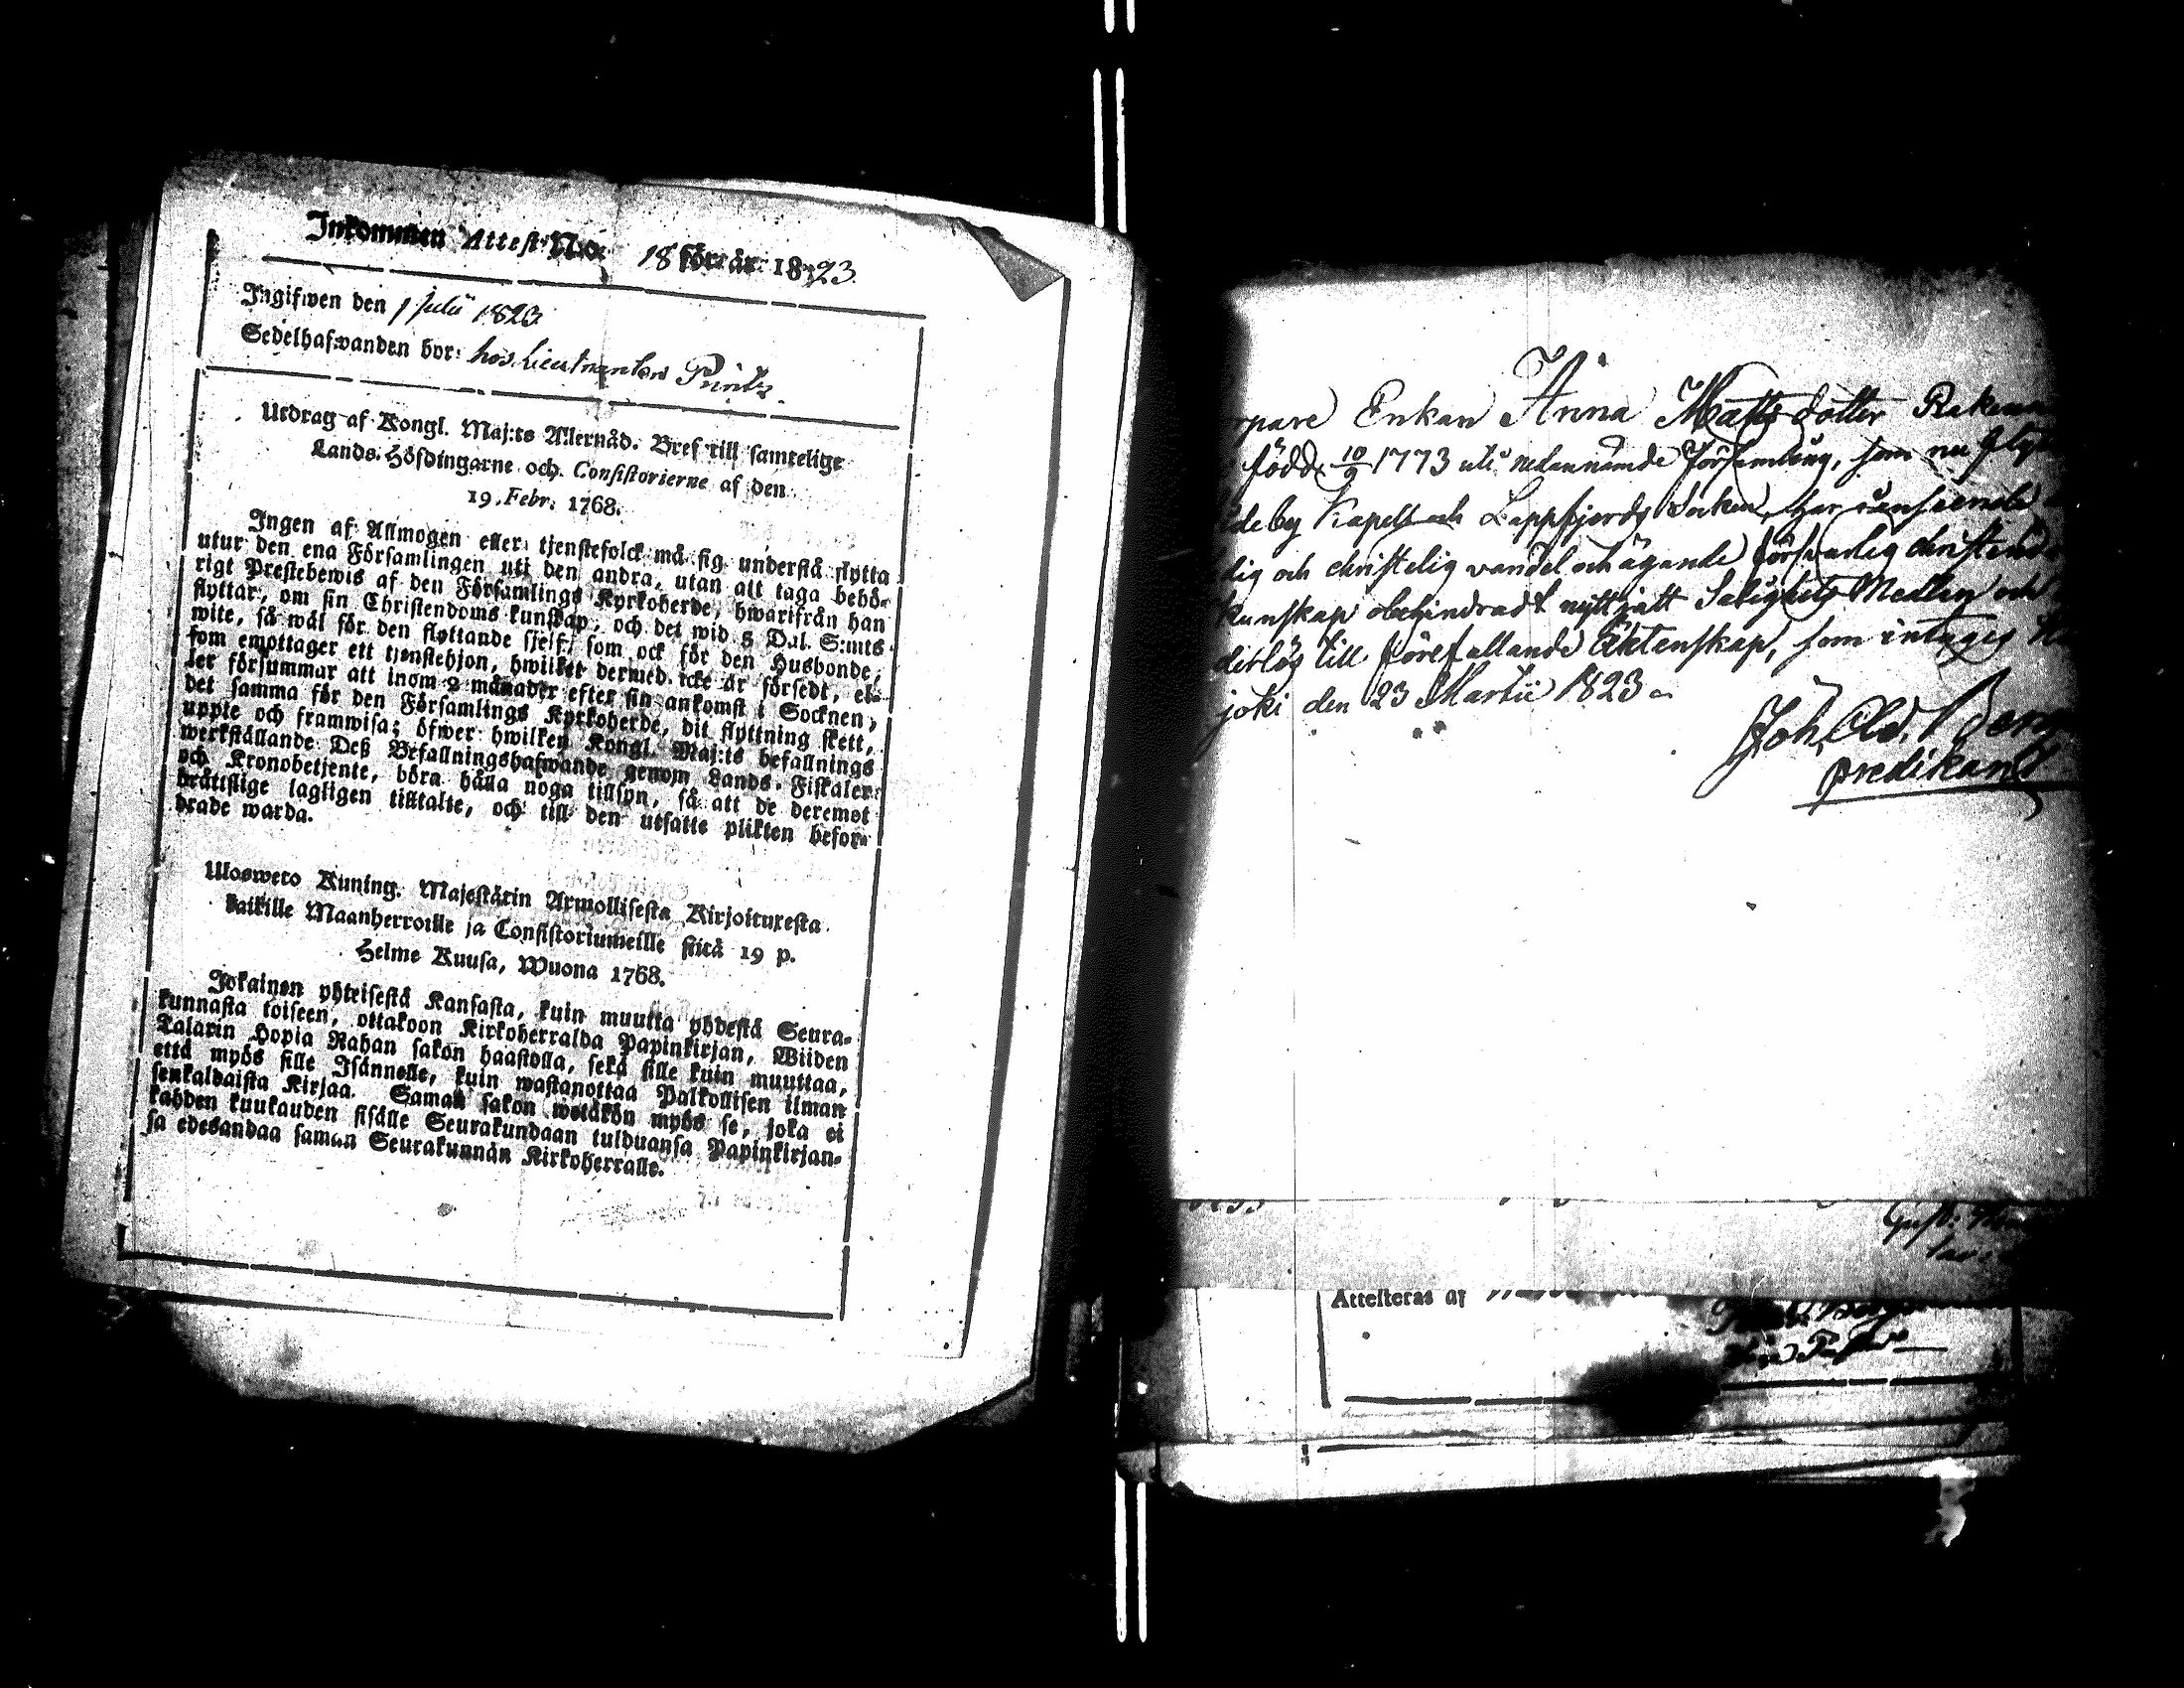 Inkommen Attest No 18 för år 1823.
Ingifwen den 1 Julii 1823
Sedelhafwanden bor: hos Lieutnanten Printz.
Utdrag af Kongl. Maj:ts Allernåd. Bref till samtelige
Lands-Höfdingarne och Consistorierne af den
19. Febr. 1768.
Ingen af Allmogen eller tjenstefolck må sig understå flytta
utur den ena Församlingen uti den andra, utan att taga behö-
rigt Prestebewis af den Församlings Kyrkoherde, hwarifrån han
flyttar, om sin Christendoms kunskap, och det wid 5 Dal. S:mts
wite, så wäl för den flyttande sjelf, som ock för den Husbonde,
som emottager ett tjenstehjon, hwilket dermed icke är försedt, el-
ler försummar att inom 2 månader efter sin ankomst i Socknen,
det samma för den Församlings Kyrkoherde, dit flyttning skett,
uppte och framwisa; öfwer hwilken Kongl. Maj:ts befallnings
werkställande Deß Befallningshafwande genom Lands-Fiskaler
och Kronobetjente, böra hålla noga tillsyn, så att de deremot
brättslige lagligen tilltalte, och till den utsatte plikten befor-
drade warda.
Uloswето Kuning. Majestätin Armollisesta Kirjoituxesta
kaikille Maanherroille ja Consistoriumeille siitä 19 p.
Helme Kuusa, Wuona 1768.
Jokainen yhteisestä Kansasta, kuin muutta yhdestä Seura-
kunnasta toiseen, ottakoon Kirkoherralda Papinkirjan, Wiiden
Talarin Hopia Rahan sakon haastolla, sekä sille kuin muuttaa,
että myös sille Isännelle, kuin wastanottaa Palkollisen ilman
senkaldaista Kirjaa. Saman sakon wetäkön myös se, joka ei
kahden kuukauden sisälle Seurakundaan tulduansa Papinkirjan-
sa edesandaa saman Seurakunnan Kirkoherralle.
Enkan Anna Matts dotter
född 10/9 1773 uti nedannämde Församling, som nu
Kapell och Lappfjerds Socken, har
och christelig vandel och ägande försvarlig
kunskap obehindradt nyttjatt Salighets Medlen och
till förefallande Äktenskap, som intyges
joki den 23 Martii 1823
Joh.
predikant
Attesteras af